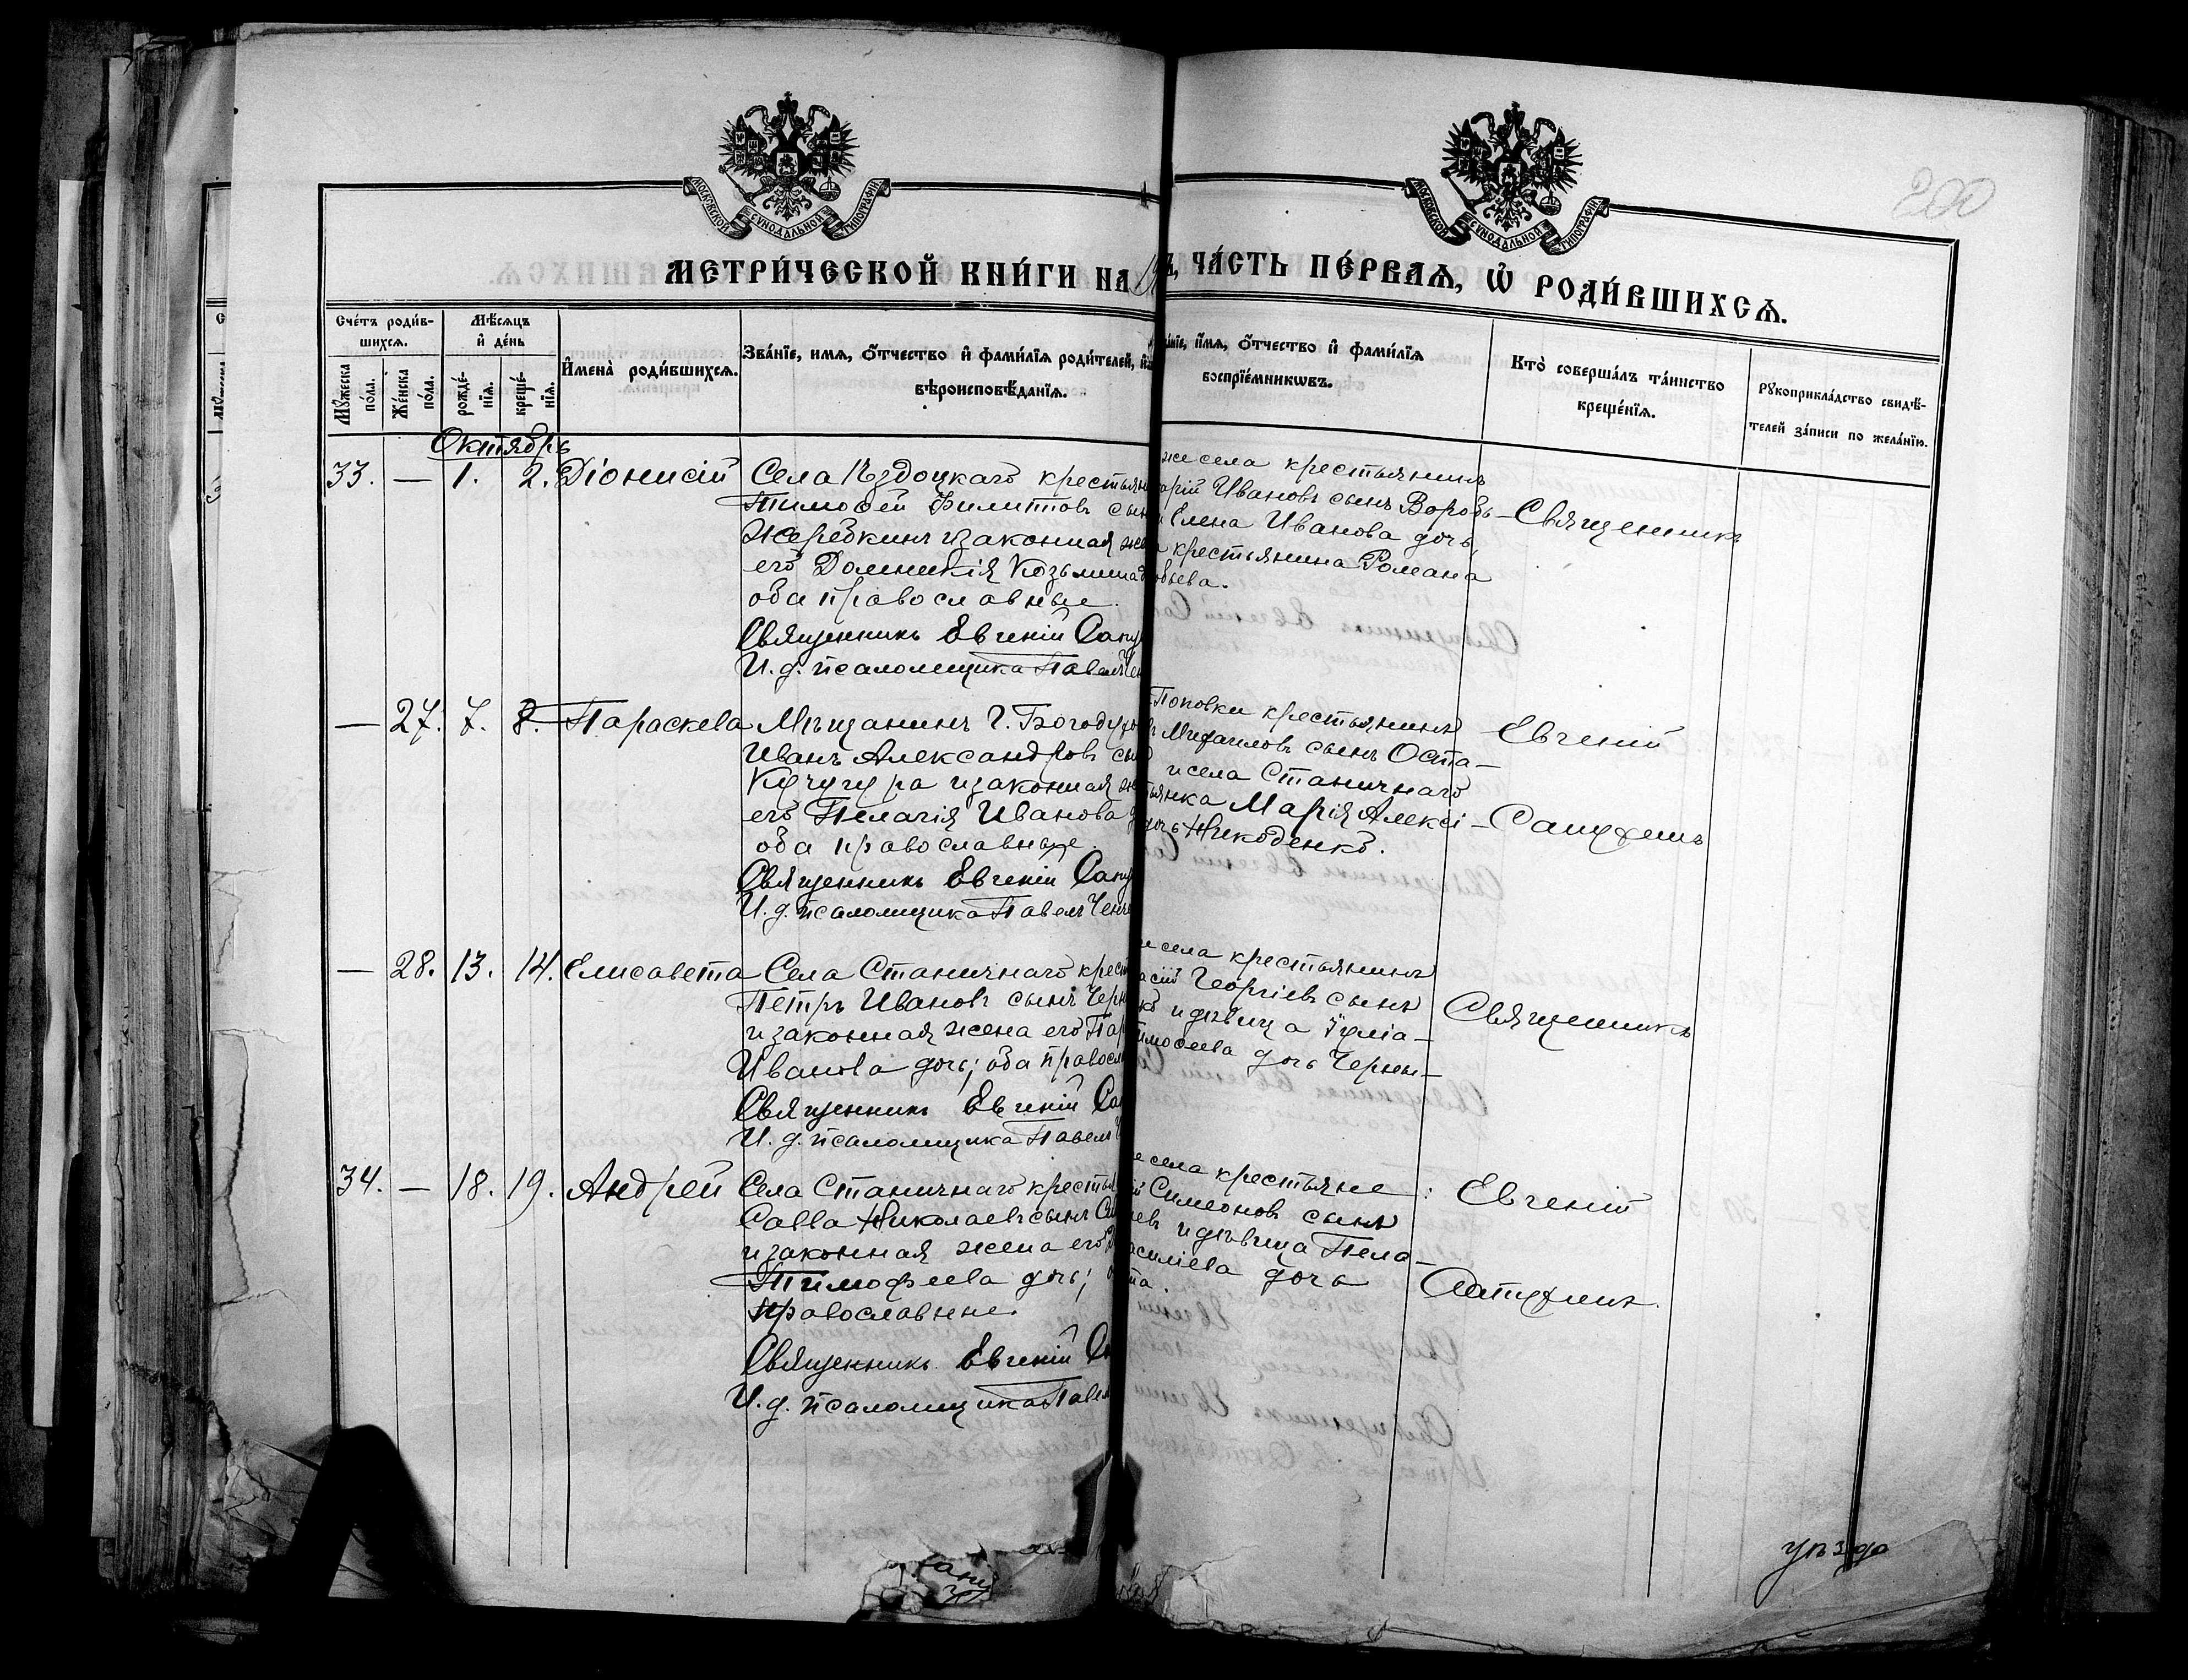 200
МОСКОВСКОЙ СУНОДАЛЬНОЙ ТИПОГРАФІИ
МОСКОВСКОЙ СУНОДАЛЬНОЙ ТИПОГРАФІИ
МЕТРИ́ЧЕСКОЙ КНИ́ГИ НА
Ъ, ЧА́СТЬ ПЕ́РВАѦ, Ѽ РОДИ́ВШИХСѦ.
Сче́тъ роди́в-
шихсѧ.
Мꙋ́жеска по́ла.
Же́нска по́ла.
Мѣ́сѧцъ
и҆ де́нь
рожде́-нїѧ.
креще́-нїѧ.
И҆мена̀ роди́вшихсѧ.
Зва́нїе, имѧ, ѻ҆́тчество и҆ фами́лїѧ роди́телей, и҆
вѣроисповѣ́данїѧ.
а́нїе, и҆́мѧ, ѻ҆́тчество и҆ фами́лїѧ
воспрїе́мникѡвъ.
Кто̀ соверша́лъ та́инство
креще́нїѧ.
Рꙋкоприкла́дство свидѣ́-
телей за́писи по жела́нїю.
Октябрь
33. — 1. 2. Діонисій
Села Ѣздоцкаго крестьян
Тимофей Филиппов сын
Жеребкинъ и законная же
его Домникія Козьмина д
оба православные.
Священникъ Евгеній Сапу
И. д. псаломщика Павелъ Чен
же села крестьянинъ
арій Ивановъ сынъ Вороб—
и Елена Иванова дочь,
а крестьянина Романа
обьева.
Священникъ
— 27. 7. 8. Параскева
Мѣщанинъ г. Богодухо
Иванъ Александров сы
Кучугура и законная ж
его Пелагія Иванова д
оба православные.
Священникъ Евгеній Сапу
И. д. псаломщика Павелъ Ченч
Поповки крестьянинъ
Михаиловъ сынъ Оста—
и села Станичнаго
тьянка Марія Алексі—
дочь Никоденко.
Евгеній
Сапухинъ
— 28. 13. 14. Елисавета
Села Станичнаго крест
Петръ Ивановъ сынъ Черн
и законная жена его Пар
Иванова дочь; оба правосл
Священникъ Евгеній Сап
И. д. псаломщика Павелъ Ч
е села крестьянинъ
асій Георгіевъ сынъ
ко и дѣвица Іуліа—
имофеева дочь Черны—
Священникъ
34. — 18. 19. Андрей
Села Станичнаго крестья
Савва Николаевъ сынъ Си
и законная жена его
Тимофеева дочь; о
православные.
Священникъ Евгеній Са
И. д. псаломщика Павел
е села крестьяне:
й Симеоновъ сынъ
евъ и дѣвица Пела—
асиліева дочь
та.
Евгеній
Сапухинъ.
уѣзда